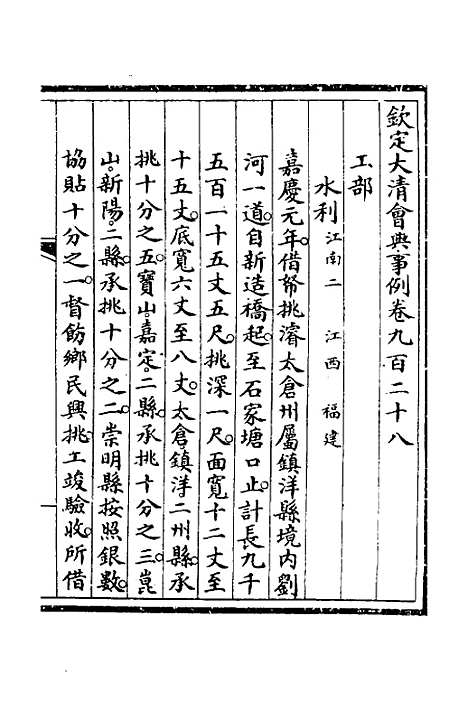 欽定大清會典事例卷九百二十八
工部
水利江南二 江西 福建
嘉慶元年。借帑挑濬太倉州屬鎮洋縣境內劉
河一道。自新造橋起。至石家塘口止。計長九千
五百一十五丈五尺。挑深一尺。面寬十二丈至
十五丈。底寬六丈至八丈。太倉。鎮洋二州縣。承
挑十分之五。寶山。嘉定。二縣。承挑十分之三。崑
山。新陽。二縣。承挑十分之二。崇明縣按照銀數。
協貼十分之一。督飭鄉民興挑。工竣驗收。所借